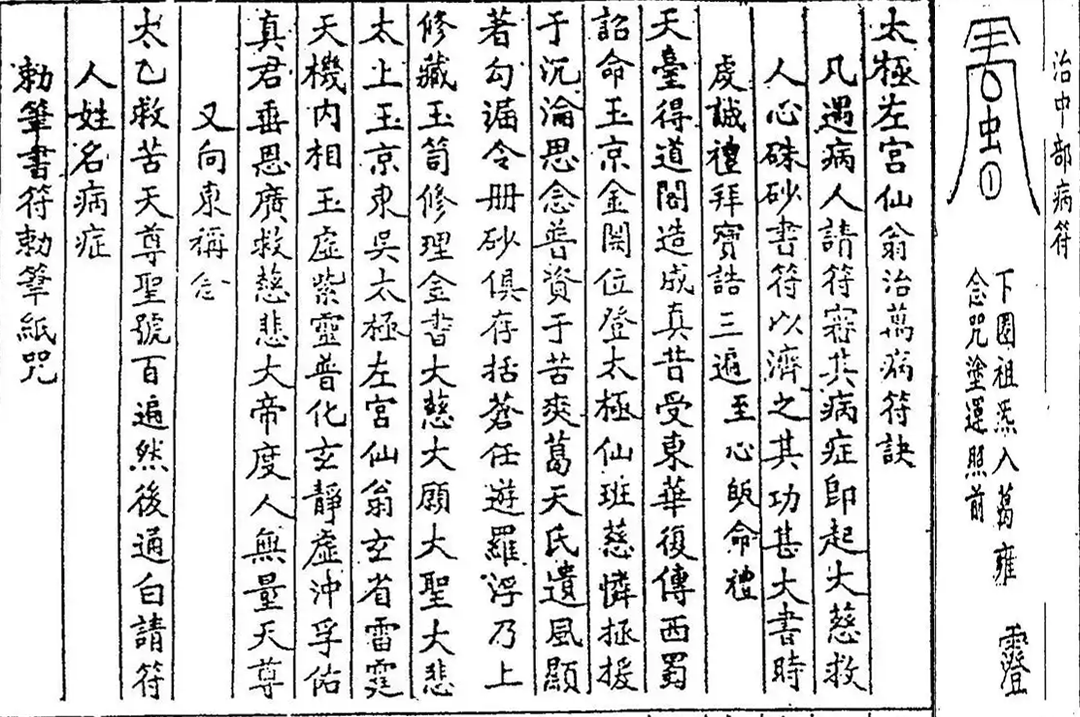 治中部病符
下圓祖炁入葛雍
念咒塗運照前
霐澄
太極左宮仙翁治萬病符訣
凡遇病人請符審其病症即起大慈救
人心硃砂書符以濟之其功甚大書時
虔誠禮拜寶誥三遍至心皈命禮
天臺得道閤造成真昔受東華復傳西蜀
詔命玉京金闕位登太極仙班慈憐拯援
于沉淪思念善資于苦爽葛天氏遺風顯
著勾漏令册砂俱存括蒼任遊羅浮乃上
修藏玉笥修理金書大慈大願大聖大悲
太上玉京東吳太極左宮仙翁玄省雷霆
天機內相玉虛紫靈普化玄靜虛沖孚佑
真君垂恩廣救慈悲大帝度人無量天尊
又向東稱念
太乙救苦天尊聖號百遍然後通白請符
人姓名病症
勅筆書符勅筆紙咒